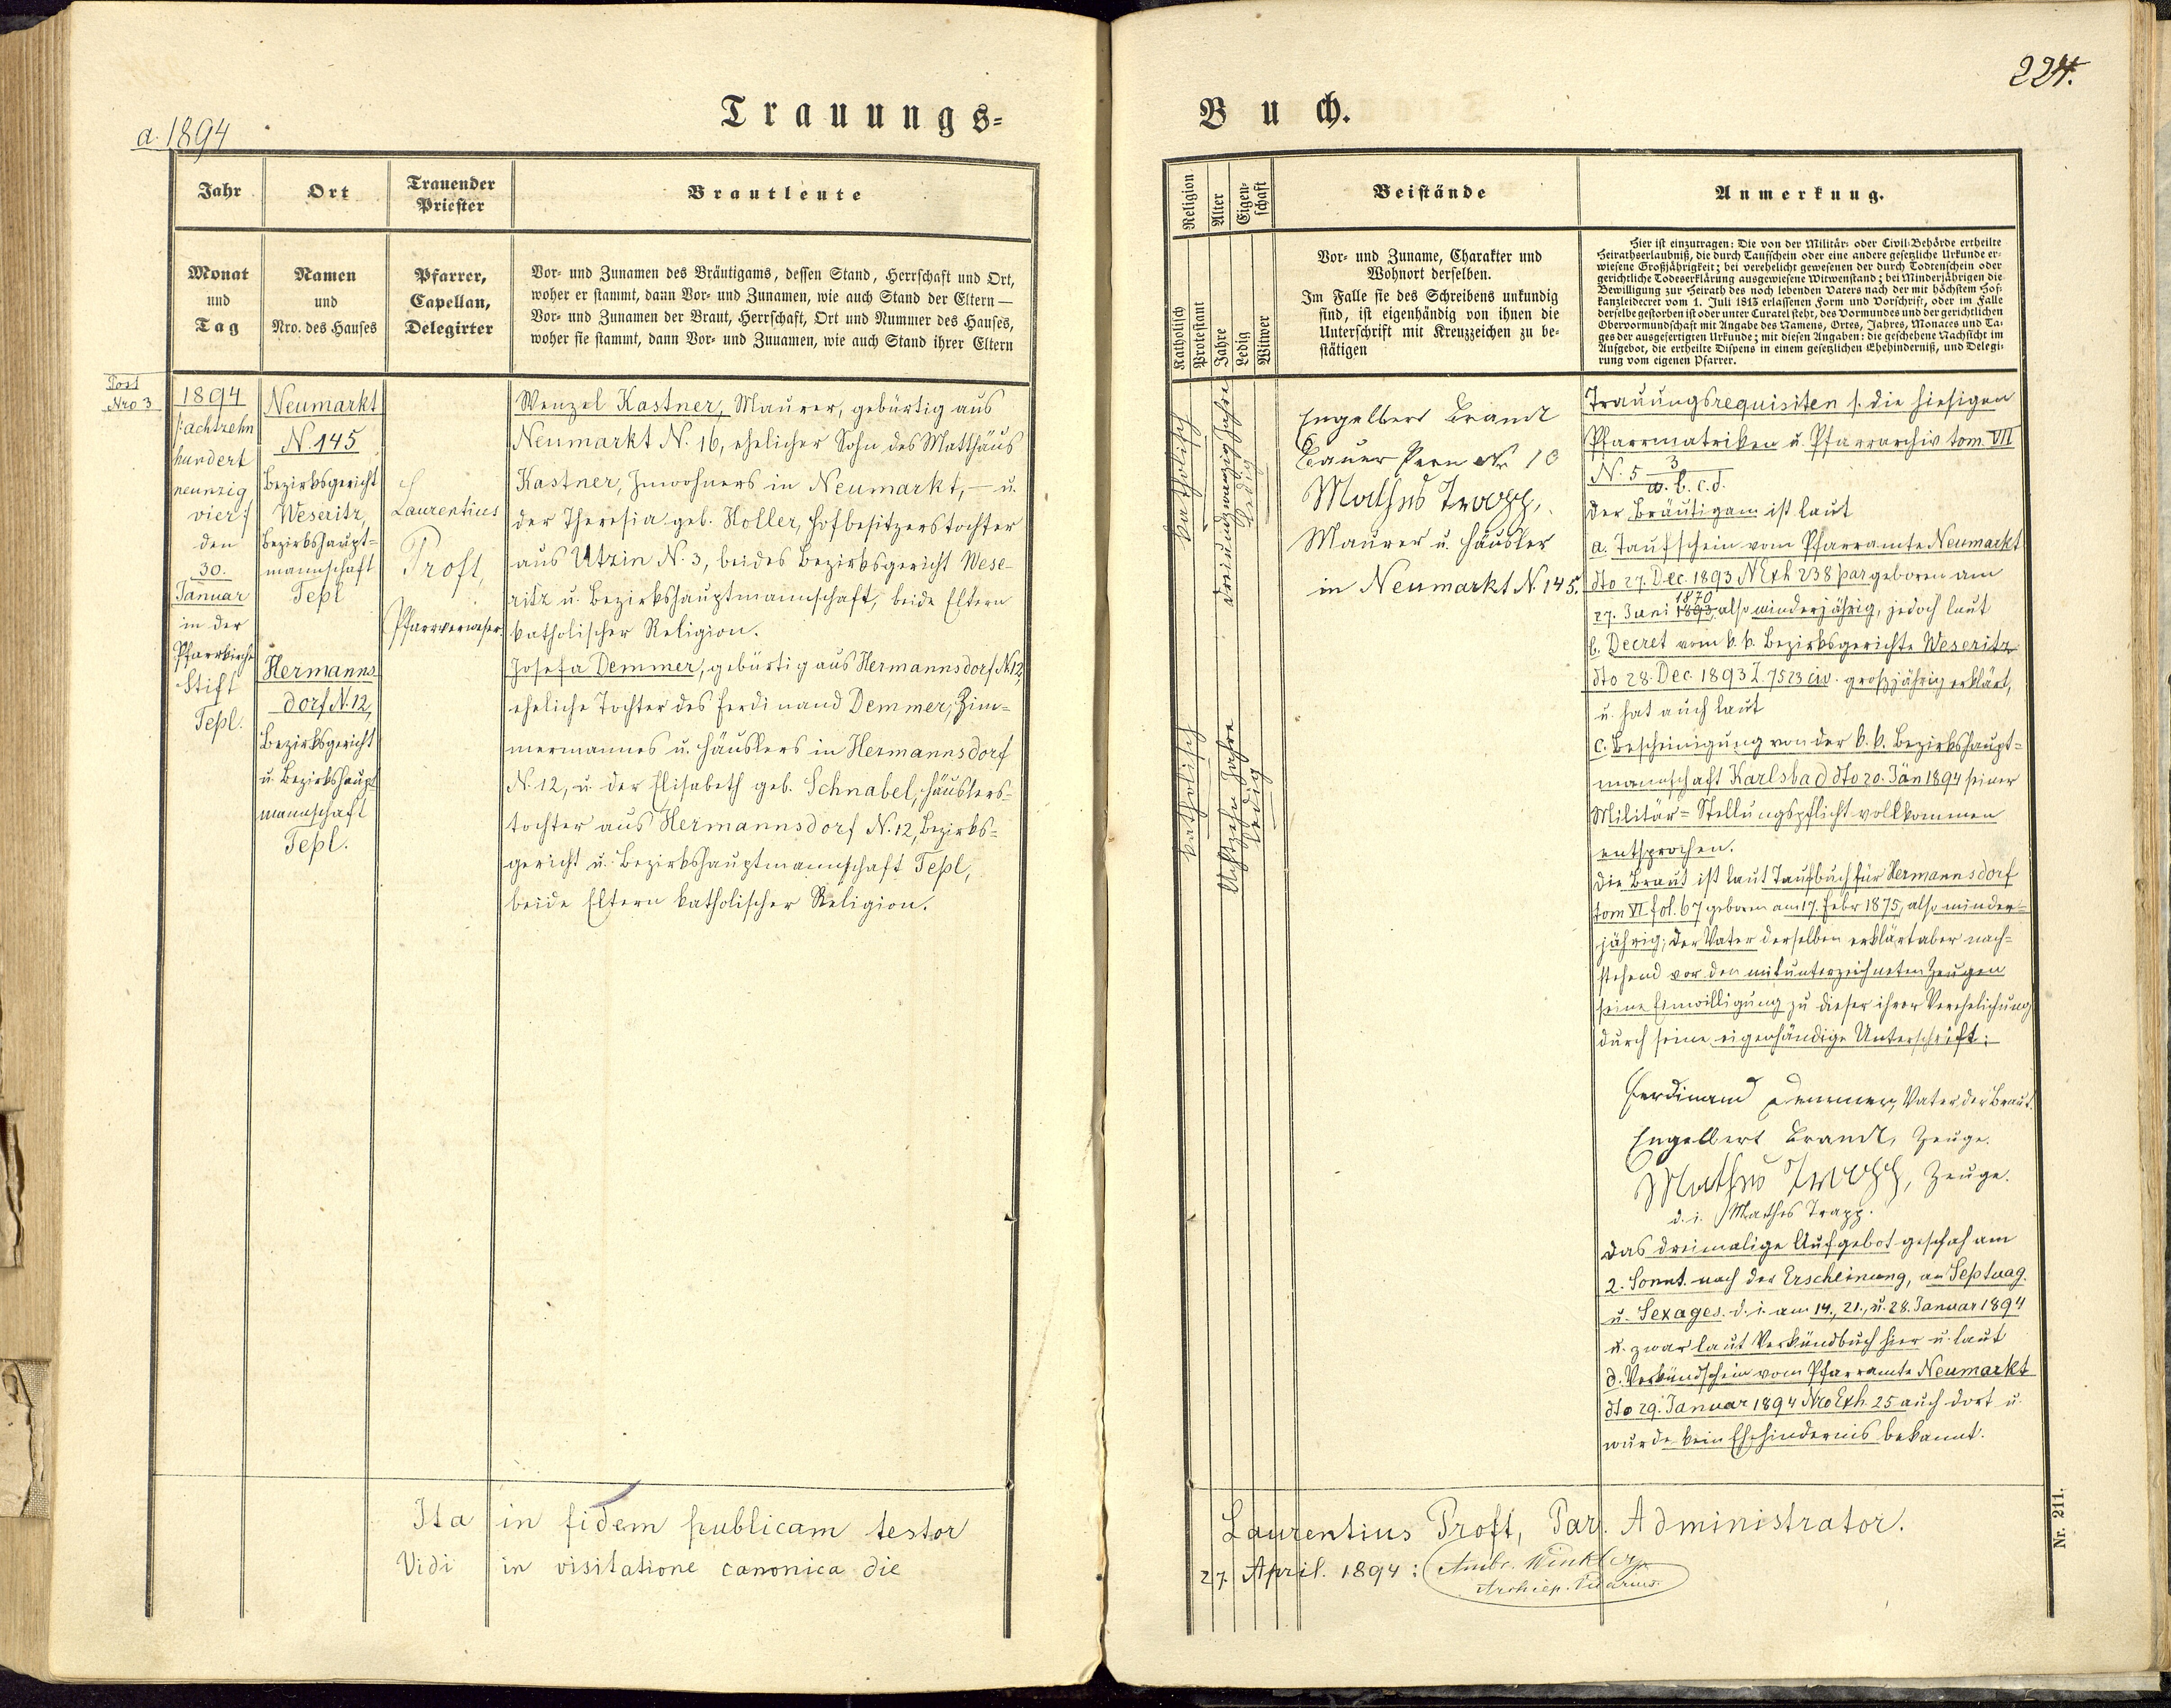 224.
Trauungs-
Buch.
a. 1894
Jahr
Ort
Trauender
Priester
Brautleute
Monat
und
Tag
Namen
und
Nro. des Hauses
Pfarrer,
Capellan,
Delegirter
Vor- und Zunamen des Bräutigams, dessen Stand, Herrschaft und Ort,
woher er stammt, dann Vor- und Zunamen, wie auch Stand der Eltern —
Vor- und Zunamen der Braut, Herrschaft, Ort und Nummer des Hauses,
woher sie stammt, dann Vor- und Zunamen, wie auch Stand ihrer Eltern
Post
Nro 3
1894
/: achtzehn
hundert
neunzig
vier :/
den
30.
Januar
in der
Pfarrkirche
Stift
Tepl.
Neumarkt
N. 145
Bezirksgericht
Weseritz,
Bezirkshaupt=
mannschaft
Tepl
Hermanns
dorf N. 12,
Bezirksgericht
u. Bezirkshaupt
mannschaft
Tepl.
Laurentius
Proft,
Pfarrverweser.
Wenzel Kastner, Maurer, gebürtig aus
Neumarkt N. 16, ehelicher Sohn des Matthäus
Kastner, Inwohners in Neumarkt, — u.
der Theresia geb. Holler, Hofbesitzerstochter
aus Utzin N. 3, beides Bezirksgericht Wese-
ritz u. Bezirkshauptmannschaft, beide Eltern
katholischer Religion.
Josefa Demmer, gebürtig aus Hermannsdorf N 12,
eheliche Tochter des Ferdinand Demmer, Zim=
mermannes u. Häuslers in Hermannsdorf
N. 12, u. der Elisabeth geb. Schnabel, Häuslers=
tochter aus Hermannsdorf N. 12, Bezirks=
gericht u. Bezirkshauptmannschaft Tepl,
beide Eltern katholischer Religion.
Ita in fidem publicam testor
Vidi in visitatione canonica die
Religion
Alter
Eigen-
schaft
Beistände
Anmerkung.
Katholisch
Protestant
Jahre
Ledig
Witwer
Vor- und Zuname, Charakter und
Wohnort derselben.
Im Falle sie des Schreibens unkundig
sind, ist eigenhändig von ihnen die
Unterschrift mit Kreuzzeichen zu be-
stätigen
Hier ist einzutragen: Die von der Militär- oder Civil-Behörde ertheilte
Heirathserlaubniß, die durch Taufschein oder eine andere gesetzliche Urkunde er-
wiesene Großjährigkeit; bei verehelicht gewesenen der durch Todtenschein oder
gerichtliche Todeserklärung ausgewiesene Witwenstand; bei Minderjährigen die
Bewilligung zur Heirath des noch lebenden Vaters nach der mit höchstem Hof-
kanzleidecret vom 1. Juli 1813 erlassenen Form und Vorschrift, oder im Falle
derselbe gestorben ist oder unter Curatel steht, des Vormundes und der gerichtlichen
Obervormundschaft mit Angabe des Namens, Ortes, Jahres, Monates und Ta-
ges der ausgefertigten Urkunde; mit diesen Angaben: die geschehene Nachsicht im
Aufgebot, die ertheilte Dispens in einem gesetzlichen Ehehinderniß, und Delegi-
rung vom eigenen Pfarrer.
katholisch
Dreiundzwanzig Jahre
ledig
katholisch
Achtzehn Jahre
ledig
Engelbert Brandl
Bauer Pern Nr 10
Mathes Trapp,
Maurer u. Häusler
in Neumarkt N. 145.
Trauungsrequisiten s. die hiesigen
Pfarrmatriken u. Pfarrarchiv tom. VII
N. 5 3
a. b. c. d.
Der Bräutigam ist laut
a. Taufschein vom Pfarramte Neumarkt
dto 27. Dec. 1893 N Exh 238 par geboren am
1870
27. Juni 1893, also minderjährig, jedoch laut
b. Decret vom k. k. Bezirksgerichte Weseritz
dto 28. Dec. 1893 Z. 7523 civ. großjährig erklärt,
u. hat auch laut
c. Bescheinigung von der k. k. Bezirkshaupt=
mannschaft Karlsbad dto 20. Jän 1894 seiner
Militär=Stellungspflicht vollkommen
entsprochen.
Die Braut ist laut Taufbuch für Hermannsdorf
tom VI fol. 67 geboren am 17. Febr 1875, also minder=
jährig; der Vater derselben erklärt aber nach=
stehend vor den mitunterzeichneten Zeugen
seine Einwilligung zu dieser ihrer Verehelichung
durch seine eigenhändige Unterschrift:
Ferdinand Demmer, Vater der Braut.
Engelbert Brandl, Zeuge.
Mathes Trapp, Zeuge.
d. i. Mathes Trapp.
Das dreimalige Aufgebot geschah am
2. Sonnt. nach der Erscheinung, an Septuag.
u. Sexages. d. i. am 14., 21., u. 28. Januar 1894
u. zwar laut Verkündbuch hier u. laut
d. Verkündschein vom Pfarramte Neumarkt
dto 29. Januar 1894 Nro Exh. 25 auch dort u.
wurde kein Ehehindernis bekannt.
Laurentius Proft, Par. Administrator.
27. April. 1894: Ambr. Winkler
Archiep. Vicarius.
Nr. 211.